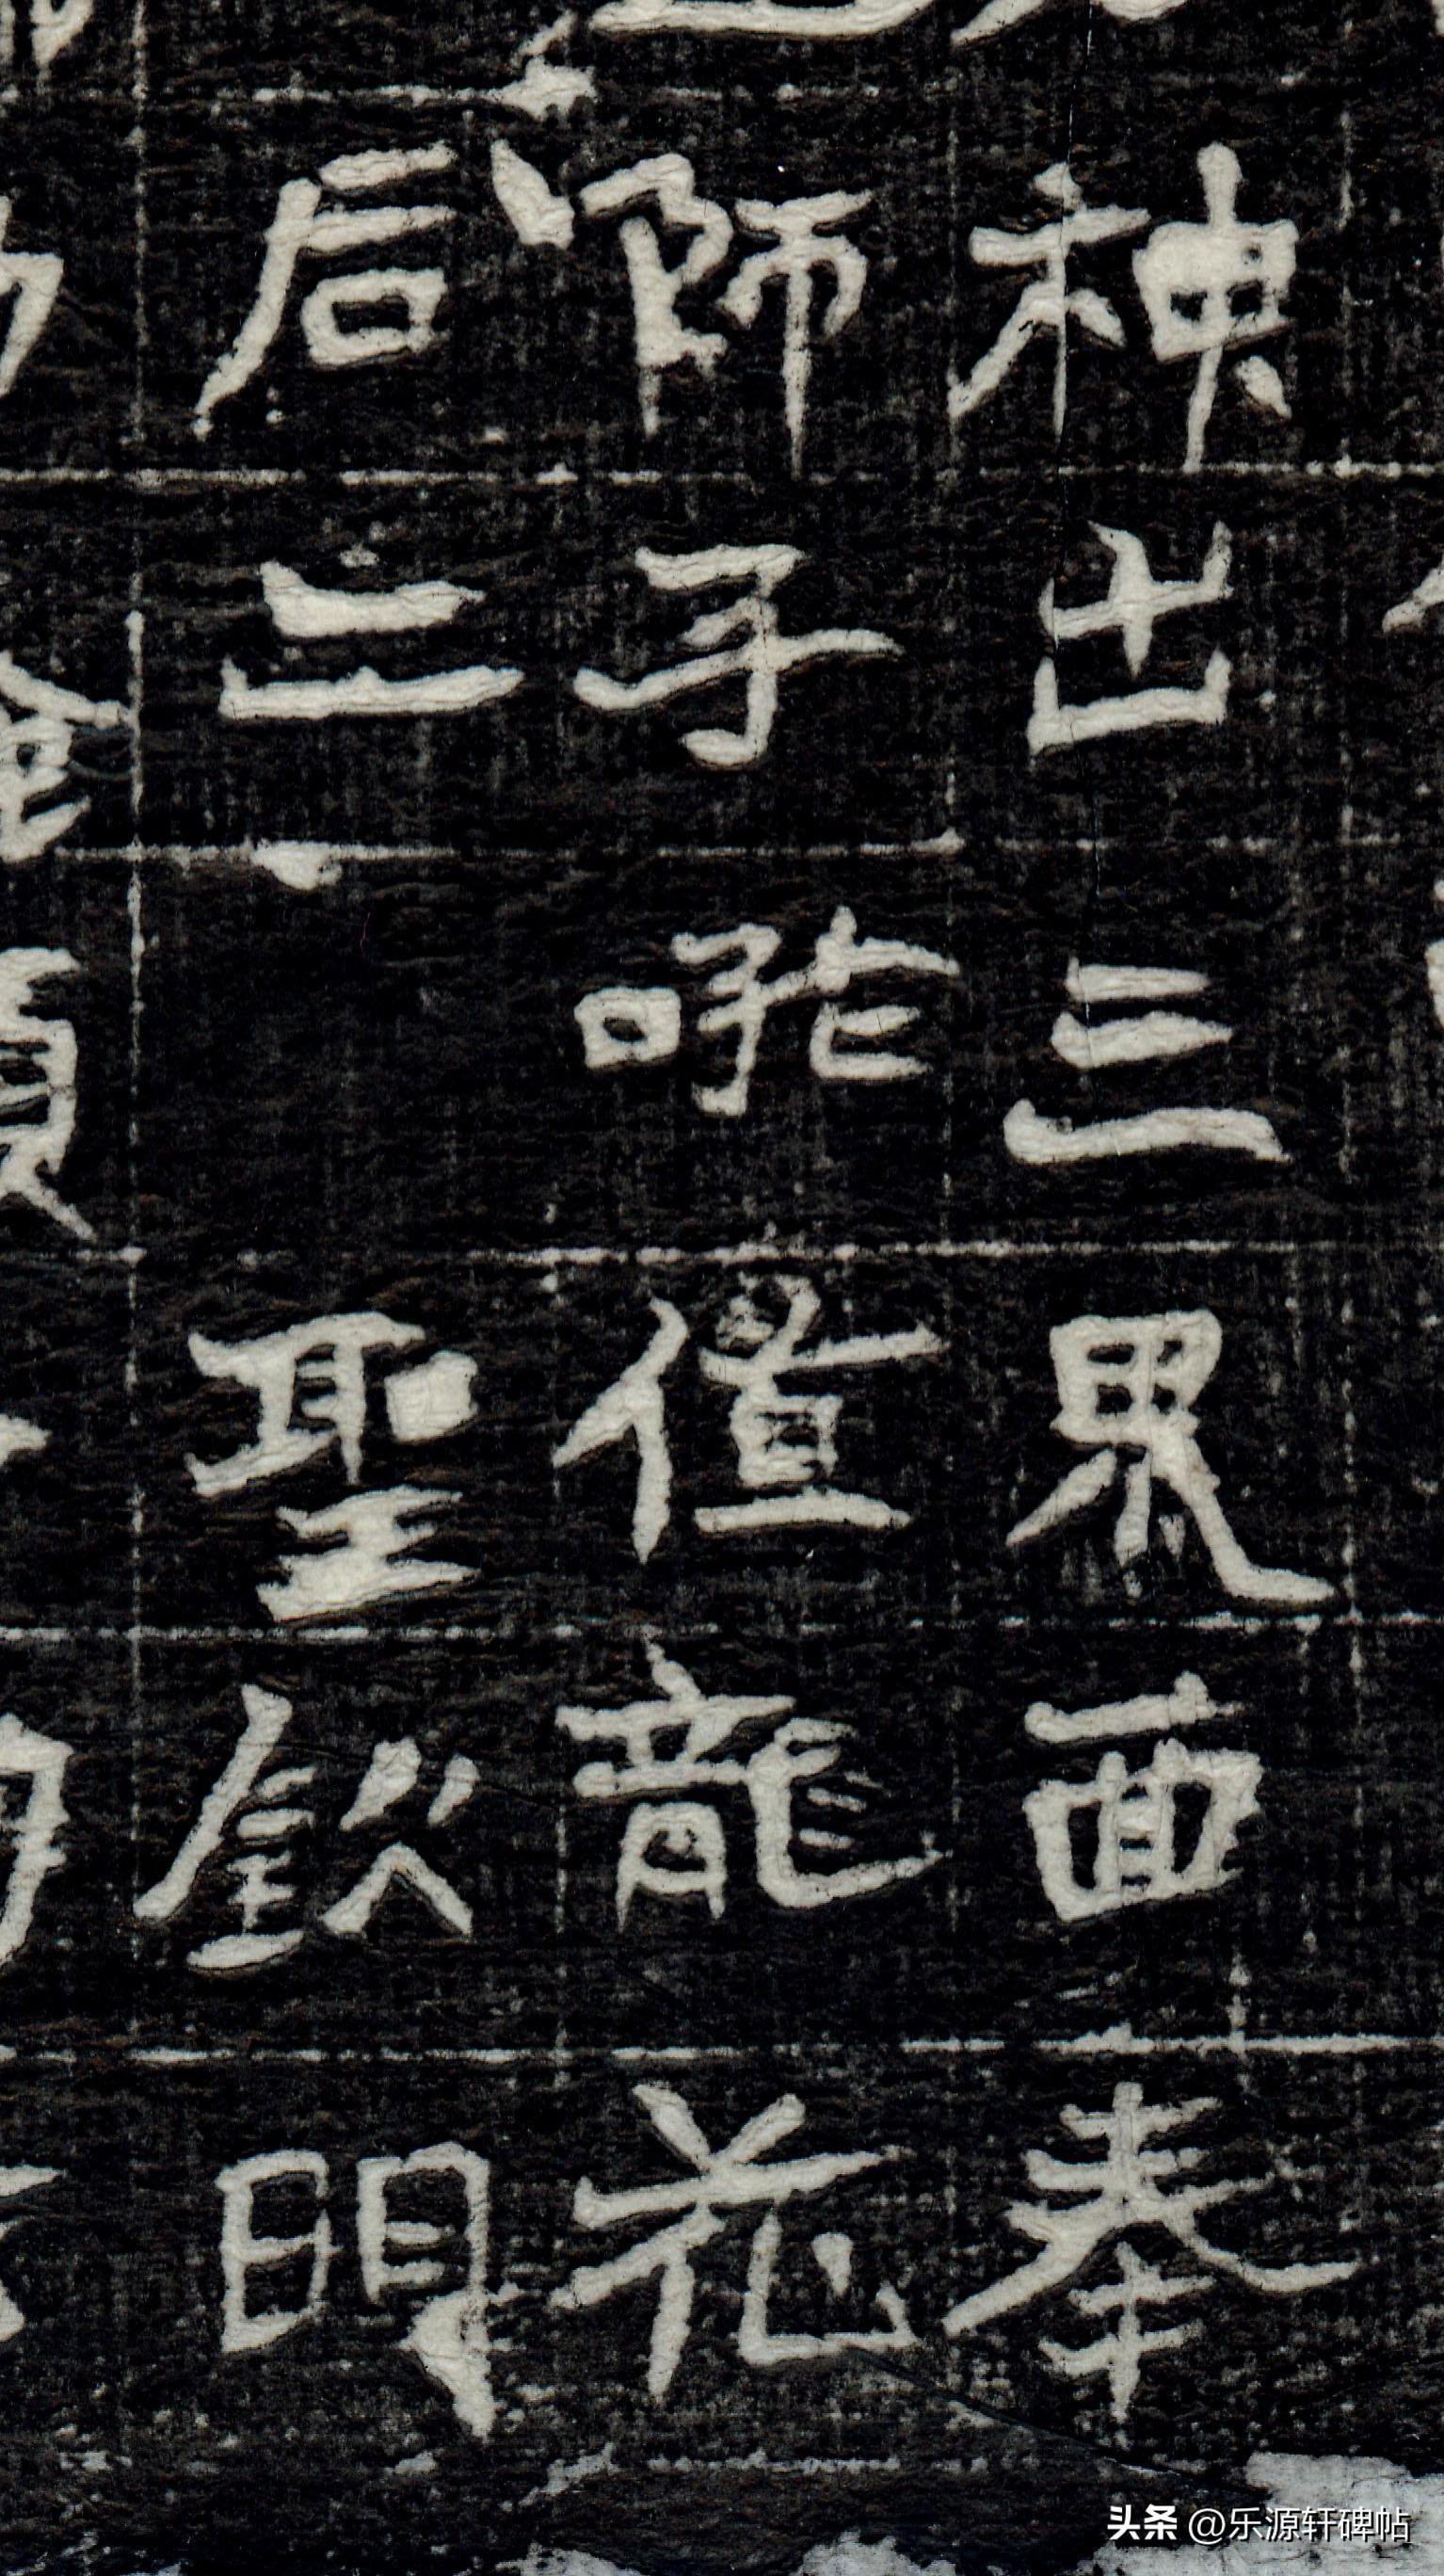 神出三界面奉
師子吼值龍花
后二聖欽明
头条 @乐源轩碑帖